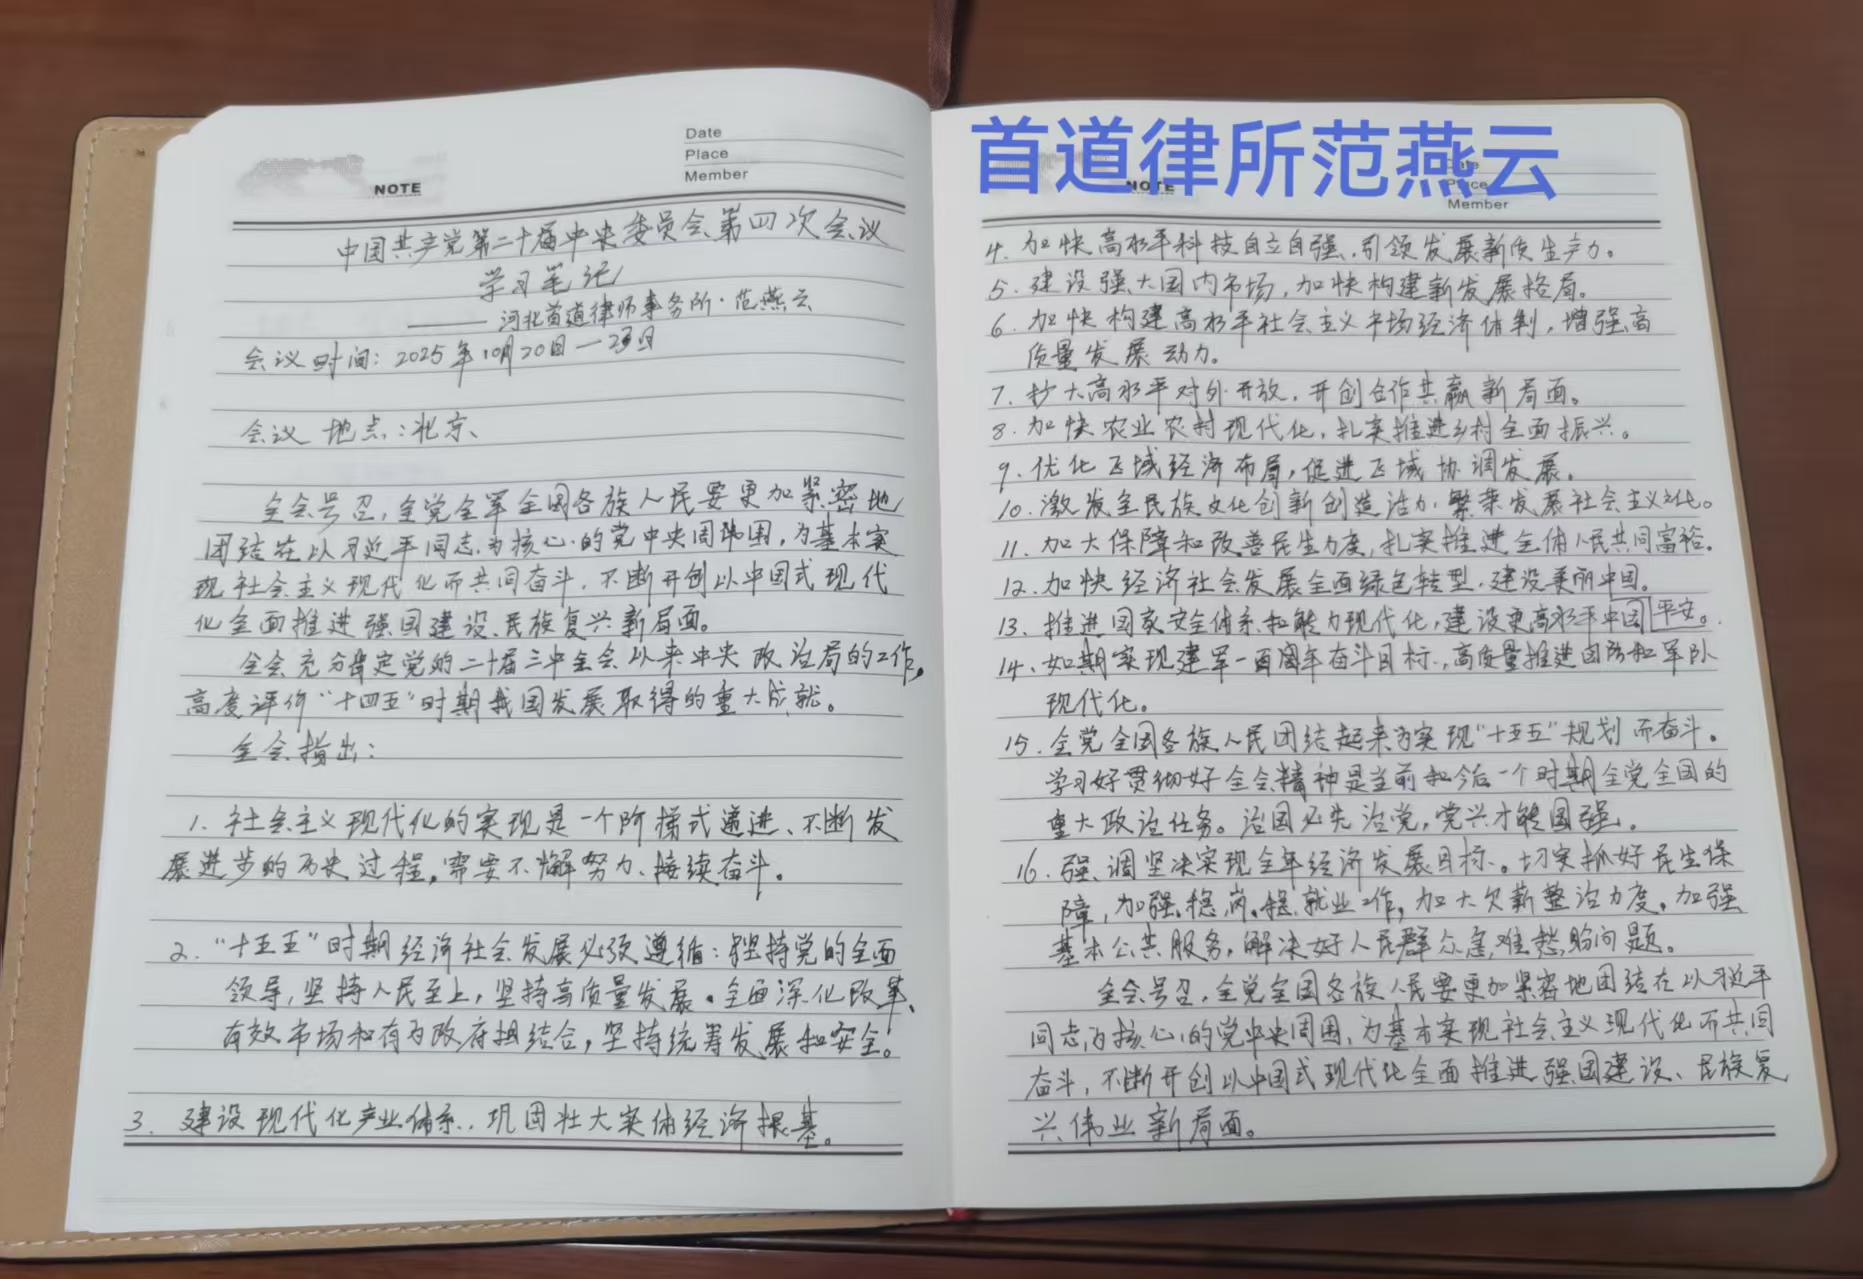 Date
Place
Member
NOTE
中国共产党第二十届中央委员会第四次会议
学习笔记
——河北首道律师事务所·范燕云
会议时间：2025年10月20日—23日
会议地点：北京
全会号召，全党全军全国各族人民要更加紧密地
团结在以习近平同志为核心的党中央周围，为基本实
现社会主义现代化而共同奋斗，不断开创以中国式现代
化全面推进强国建设、民族复兴新局面。
全会充分肯定党的二十届三中全会以来中央政治局的工作。
高度评价“十四五”时期我国发展取得的重大成就。
全会指出：
1. 社会主义现代化的实现是一个阶梯式递进、不断发
展进步的历史过程，需要不懈努力、接续奋斗。
2. “十五五”时期经济社会发展必须遵循：坚持党的全面
领导，坚持人民至上，坚持高质量发展。全面深化改革、
有效市场和有为政府相结合，坚持统筹发展和安全。
3. 建设现代化产业体系，巩固壮大实体经济根基。
首道律所范燕云
NOTE
Date
Place
Member
4. 加快高水平科技自立自强，引领发展新质生产力。
5. 建设强大国内市场，加快构建新发展格局。
6. 加快构建高水平社会主义市场经济体制，增强高
质量发展动力。
7. 扩大高水平对外开放，开创合作共赢新局面。
8. 加快农业农村现代化，扎实推进乡村全面振兴。
9. 优化区域经济布局，促进区域协调发展。
10. 激发全民族文化创新创造活力，繁荣发展社会主义文化。
11. 加大保障和改善民生力度，扎实推进全体人民共同富裕。
12. 加快经济社会发展全面绿色转型，建设美丽中国。
13. 推进国家安全体系和能力现代化，建设更高水平中国平安。
14. 如期实现建军一百周年奋斗目标，高质量推进国防和军队
现代化。
15. 全党全国各族人民团结起来为实现“十五五”规划而奋斗。
学习好贯彻好全会精神是当前和今后一个时期全党全国的
重大政治任务。治国必先治党，党兴才能国强。
16. 强调坚决实现全年经济发展目标。切实抓好民生保
障，加强稳岗稳就业工作，加大欠薪整治力度。加强
基本公共服务，解决好人民群众急难愁盼问题。
全会号召，全党全国各族人民要更加紧密地团结在以习近平
同志为核心的党中央周围，为基本实现社会主义现代化而共同
奋斗，不断开创以中国式现代化全面推进强国建设、民族复
兴伟业新局面。